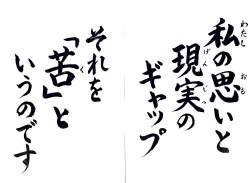 私の思いと
現実の
ギャップ
それを
「苦」と
いうのです